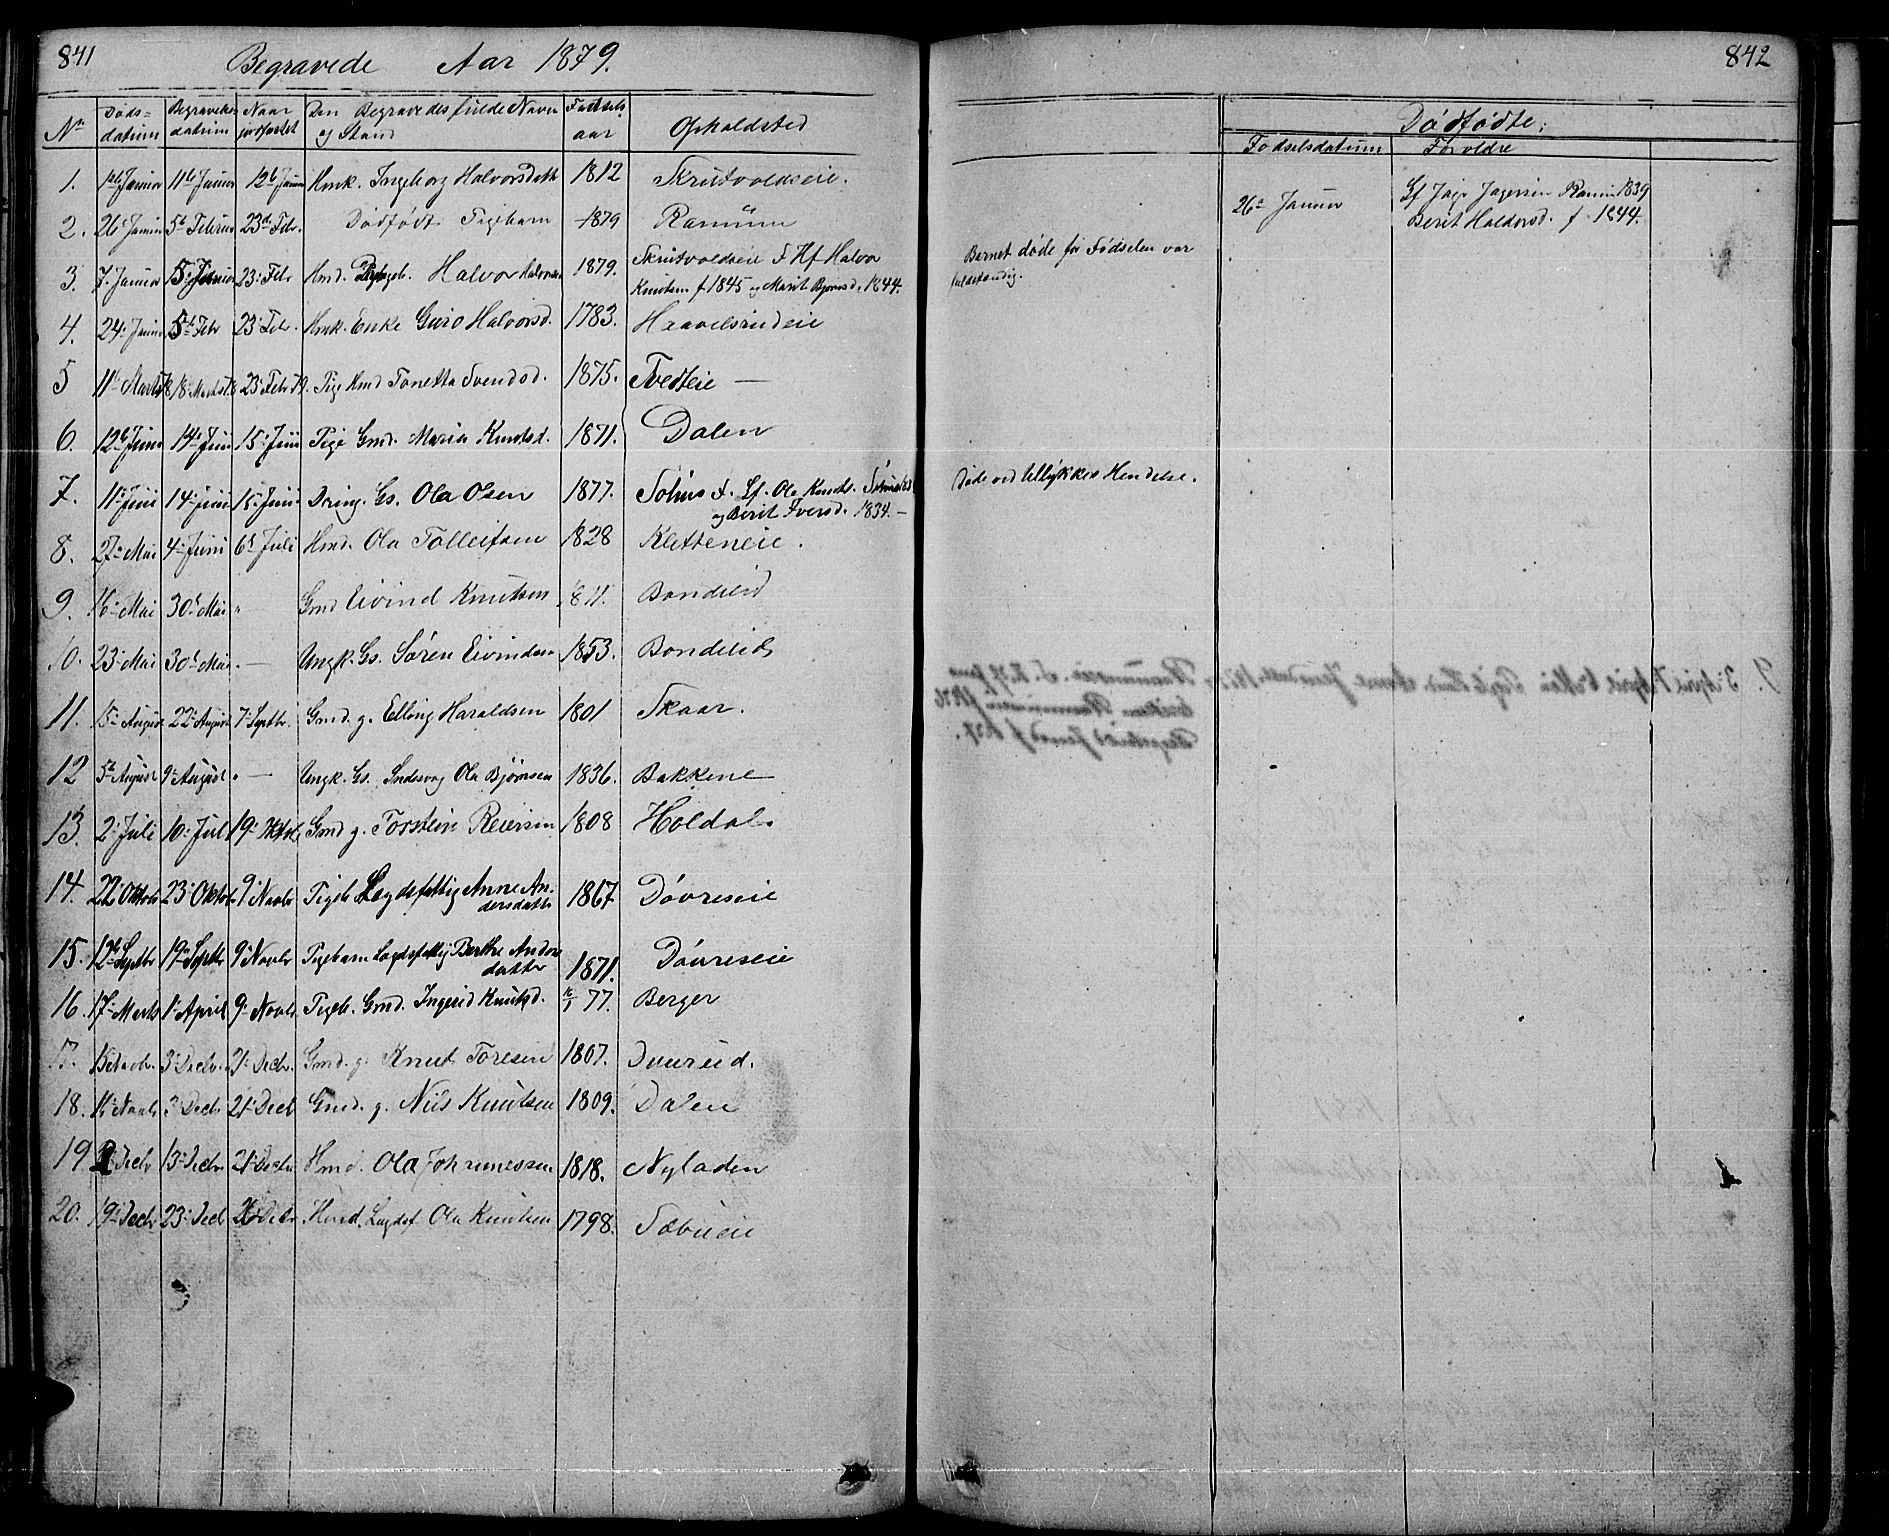 841
Begravede Aar 1879.
No Døds= datum Begravelses datum Naar jordfæstet Den Begravedes fulde Navn og Stand Fødsels aar Opholdsted
1. 1ste Januar 11te Januar 12te Januar Hmk. Ingeborg Halvorsdatter 1812 Skrutvoldseie.
2. 26. Januar 5te Februar 23de Febr. Dødfødt Pigebarn 1879
3. 7. Januar 15. Januar 23. Febr Hmd. Halvor Halvorsen 1879. Skrutvoldseie F. Hf Halvor
Knutsen f. 1845 og Marit Bjørnsd. 1844.
4. 24. Januar 5te Febr 23. Febr. Hmk. Enke Guro Halvorsd. 1783. Haavelsrudeie
5 11te Marts 78 18. Marts 78 23. Febr 79. Pige Hmd Tonetta Svendsd. 1875. Tvedteie —
6. 12te Juni 14. Juni 15. Juni Pige Gmd. Maria Knutsd. 1871. Dalen
7. 11te Juni 14. Juni 15. Juni Dreng. Gs. Ola Olsen 1877. F. Lf. Ola Knuts.
og Berit Iversd. 1834. —
8. 27. Mai 4. Juni 6te Juli Hmd. Ola Tolleifsen 1828 Kletteneie.
9. 16. Mai 30te Mai " — Gmd Eivind Knutsen 1811. Bondelid
10. 23. Mai 30te Mai " — Ungk. Gs. Søren Eivindsen 1853. Bondelid
11. 15. August 22. August 7. Septbr. Gmd. g. Elling Haraldsen 1801 Skaar.
12 5te August 9. August " — Ungk. Gs. Sindsvag Ola Bjørnsen 1836. Bakkene
13. 2. Juli 10. Juli 19. Oktob Gmd g. Torstein Reiersen 1808 Holdal.
14. 22. Oktob 23. Oktob 9. Novbr Pigeb. Lægdsfattig Anne An-
dersdatter 1867 Dovreseie
15. 12te Septbr 19. Septbr 9. Novbr Pigebarn Lægdsfattig Berthe Anders
datter 1871. Dovreseie
16. 17. Marts 1. April 9. Novbr. Pigeb. Gmd. Ingerid Knutsd. 77. Berger
17. 15 Novbr. 3. Decbr. 21. Decbr. Gmd. g. Knut Toresen 1807.
18. Novbr 3. Decbr 21. Decb Gmd. g. Nils Knutsen 1809. Dalen
19 Decbr 13. Decbr 21. Decbr Hmd. Ola Johannessen 1818. Nyladen
20. 19. Decbr 23. Decb Decbr Hmd. Lægdsf. Ola Knutsen 1798. Sæbueie
842
Dødfødte:
Fødselsdatum Foreldre
26. Januar Lf 1839
Berit Haldorsd. f. 1844.
Barnet døde før Fødselen var
fuldstændig.
Døde ved Ulykkes Hendelse.